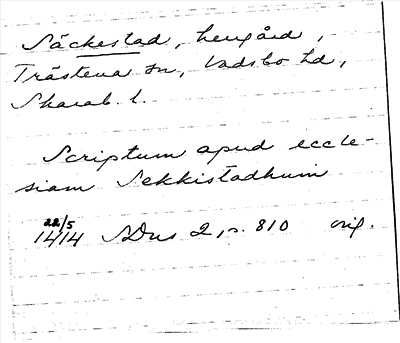 Säckestad, herrgård,
Trästena sn, Vadsbo hd,
Skarab. l.
Scriptum apud eccle-
siam Sekkistadhum
22/5
1414 SDns 2, s. 810 orig.